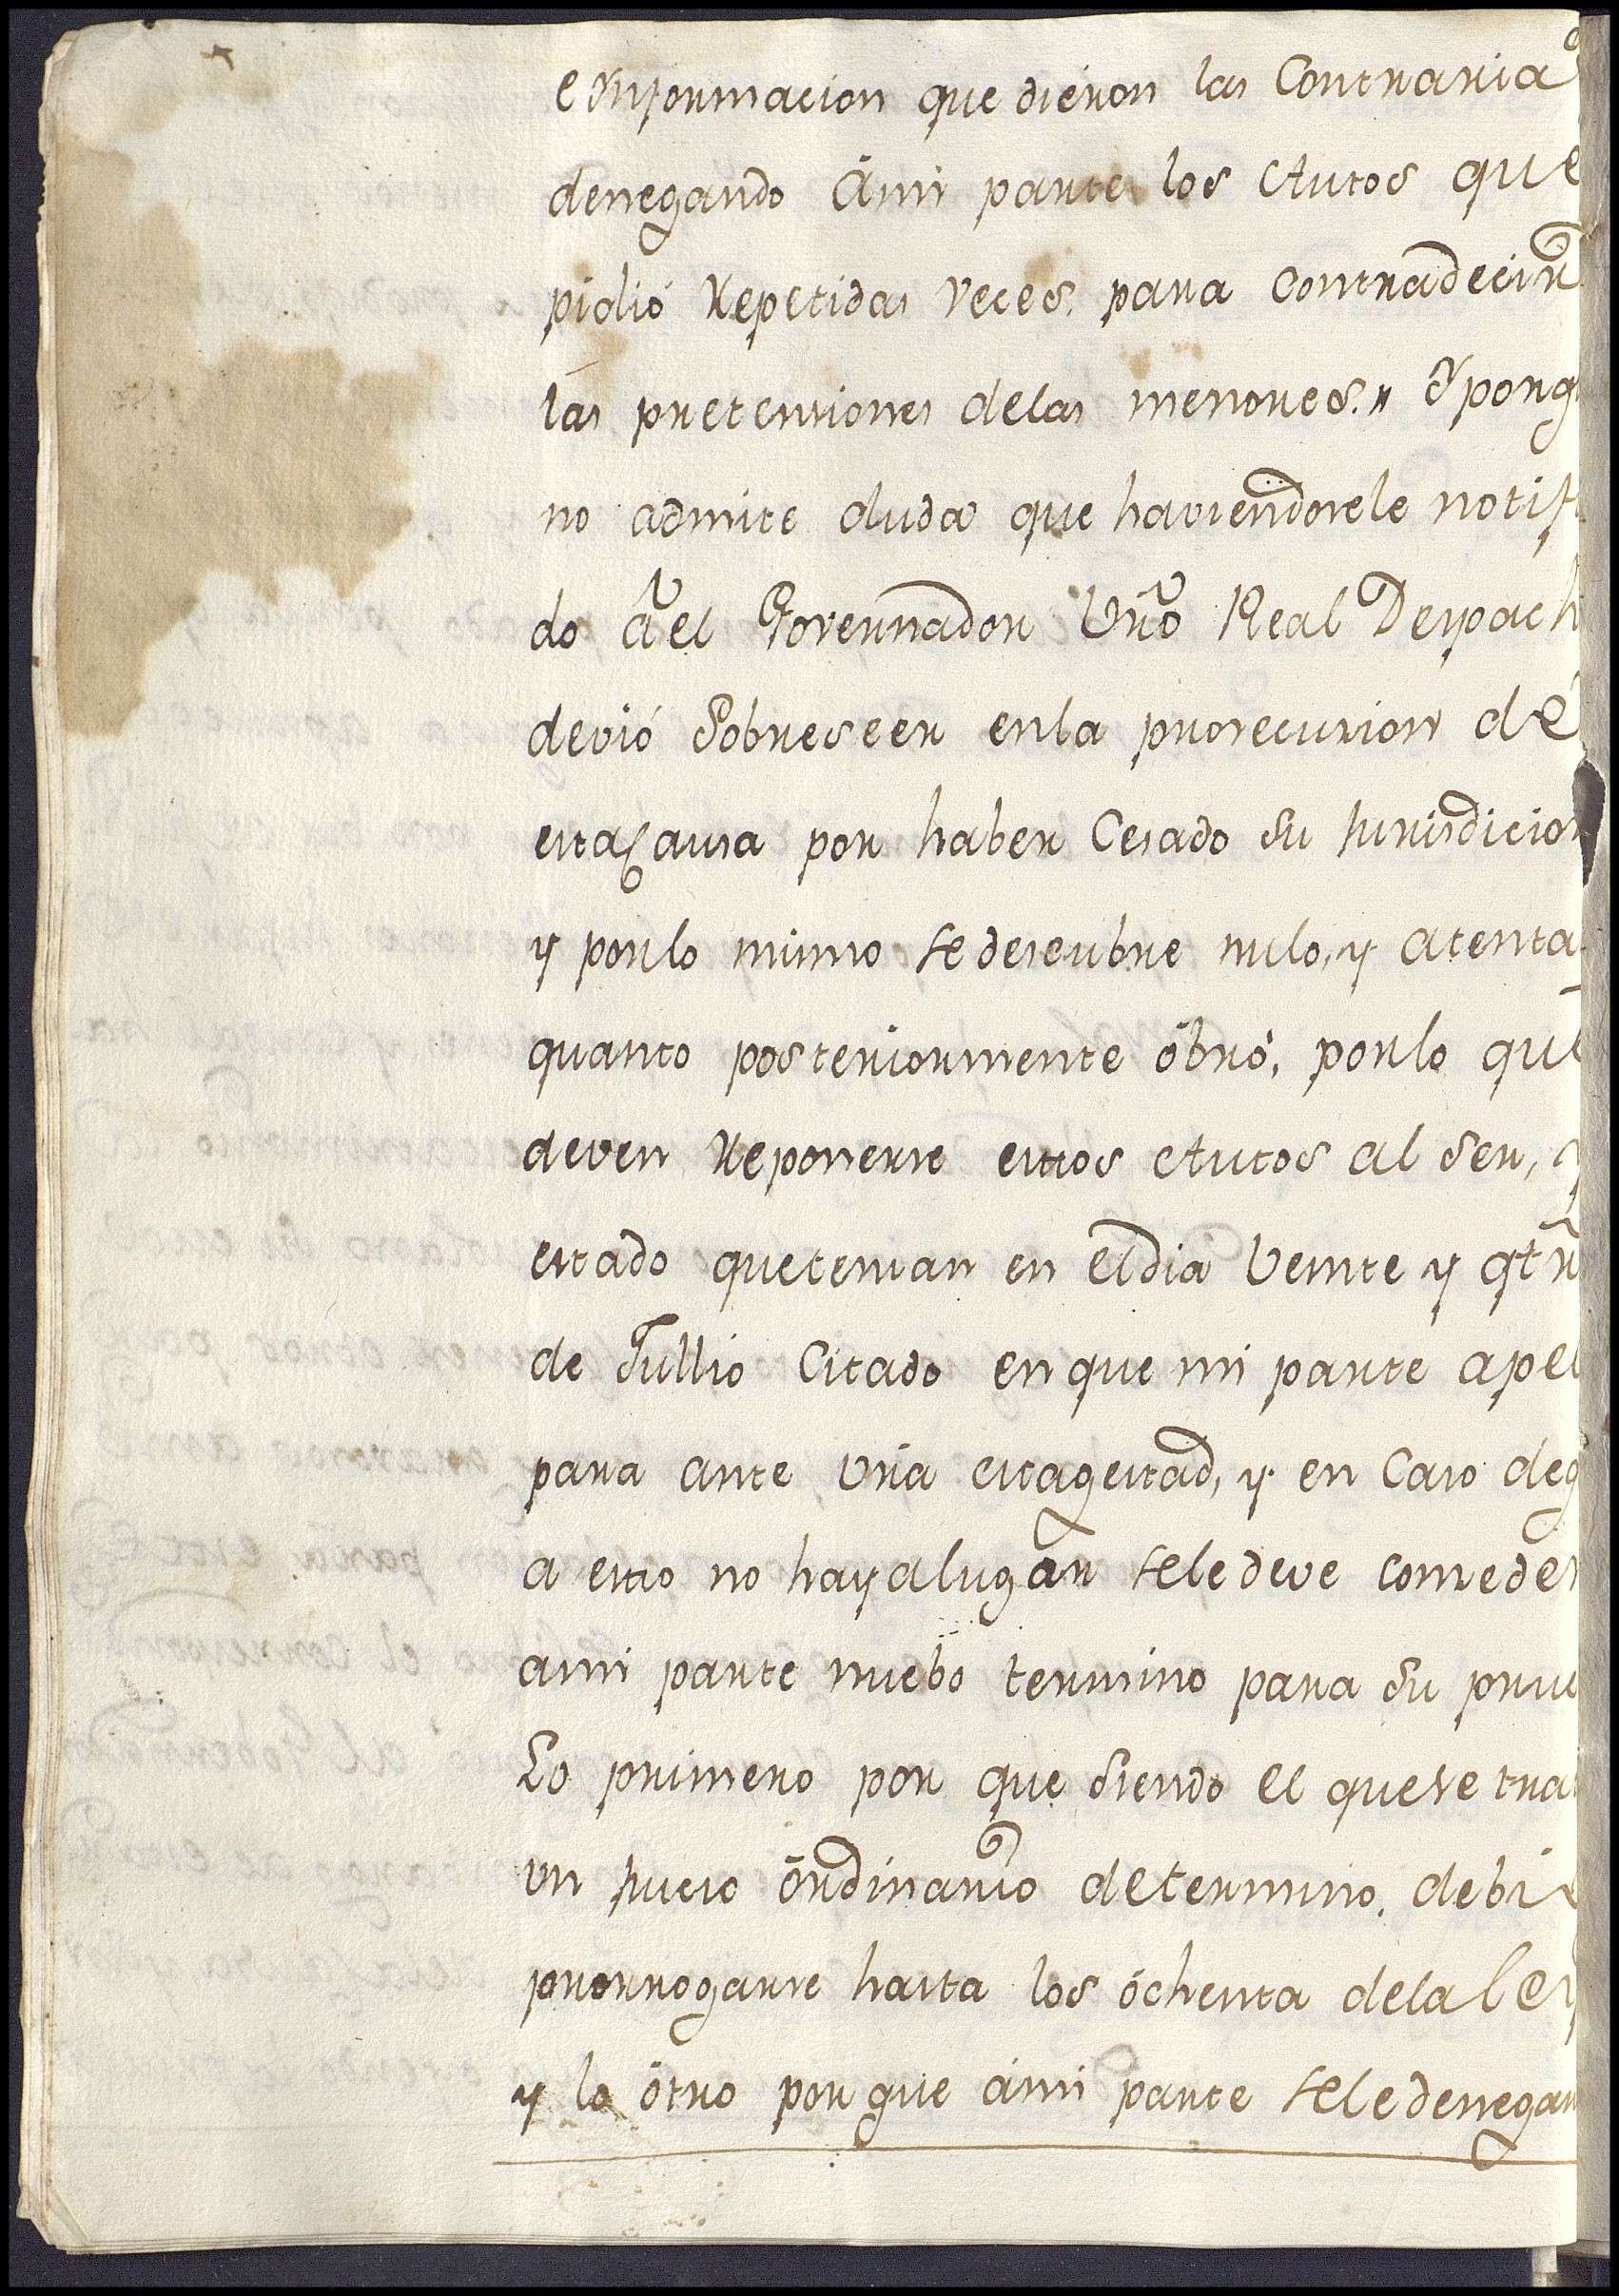 e Ynformacion que dieron las Contraria
denegando âmi parte los Autos que
pidió repetidas veces para contradecir
las pretensiones delas menores. Y porq
no admite duda que haviendosele notifi
do â el Governador Vro Real Despach
devió Sobreseer enla prosecusion de
esta Causa por haber Cesado su Jurisdicion
y porlo mismo se descubre nulo, y atenta
quanto posteriormente óbró, porlo que
deven reponerse estos Autos al ser, y
estado quetenian en eldia veinte y qtr
de Jullio Citado en que mi parte apel
para ante vra citagestad, y en Caso deq
a esto no hayalugar sele deve conseder
ami parte nuebo termino para su prue
Lo primero por que siendo el quese tra
vn juicio ôrdinario determino, debie
prorrogarse hasta los óchenta dela ley
y lo ótro porque ámi parte seledenegar